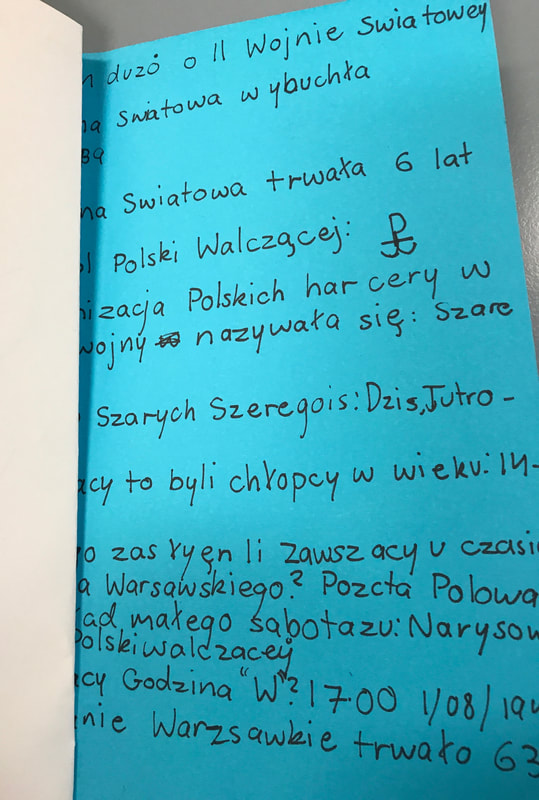 n duzó o II Wojnie Swiatowey
na swiatowa wybuchła
39
na Swiatowa trwała 6 lat
l Polski Walczącej:
izacja Polskich harcery w
wojny nazywała się: Szare
Szarych Szeregois: Dzis, Jutro -
acy to byli chłopcy w wieku: 14-
o zasłyęn li zawszacy u czasi
a Warsawskiego? Pozcta Polowa
ad małego sabotazu: Narysow
Polskiwalczacej
cy Godzina "W"? 17.00 1/08/194
nie Warzsawkie trwało 63